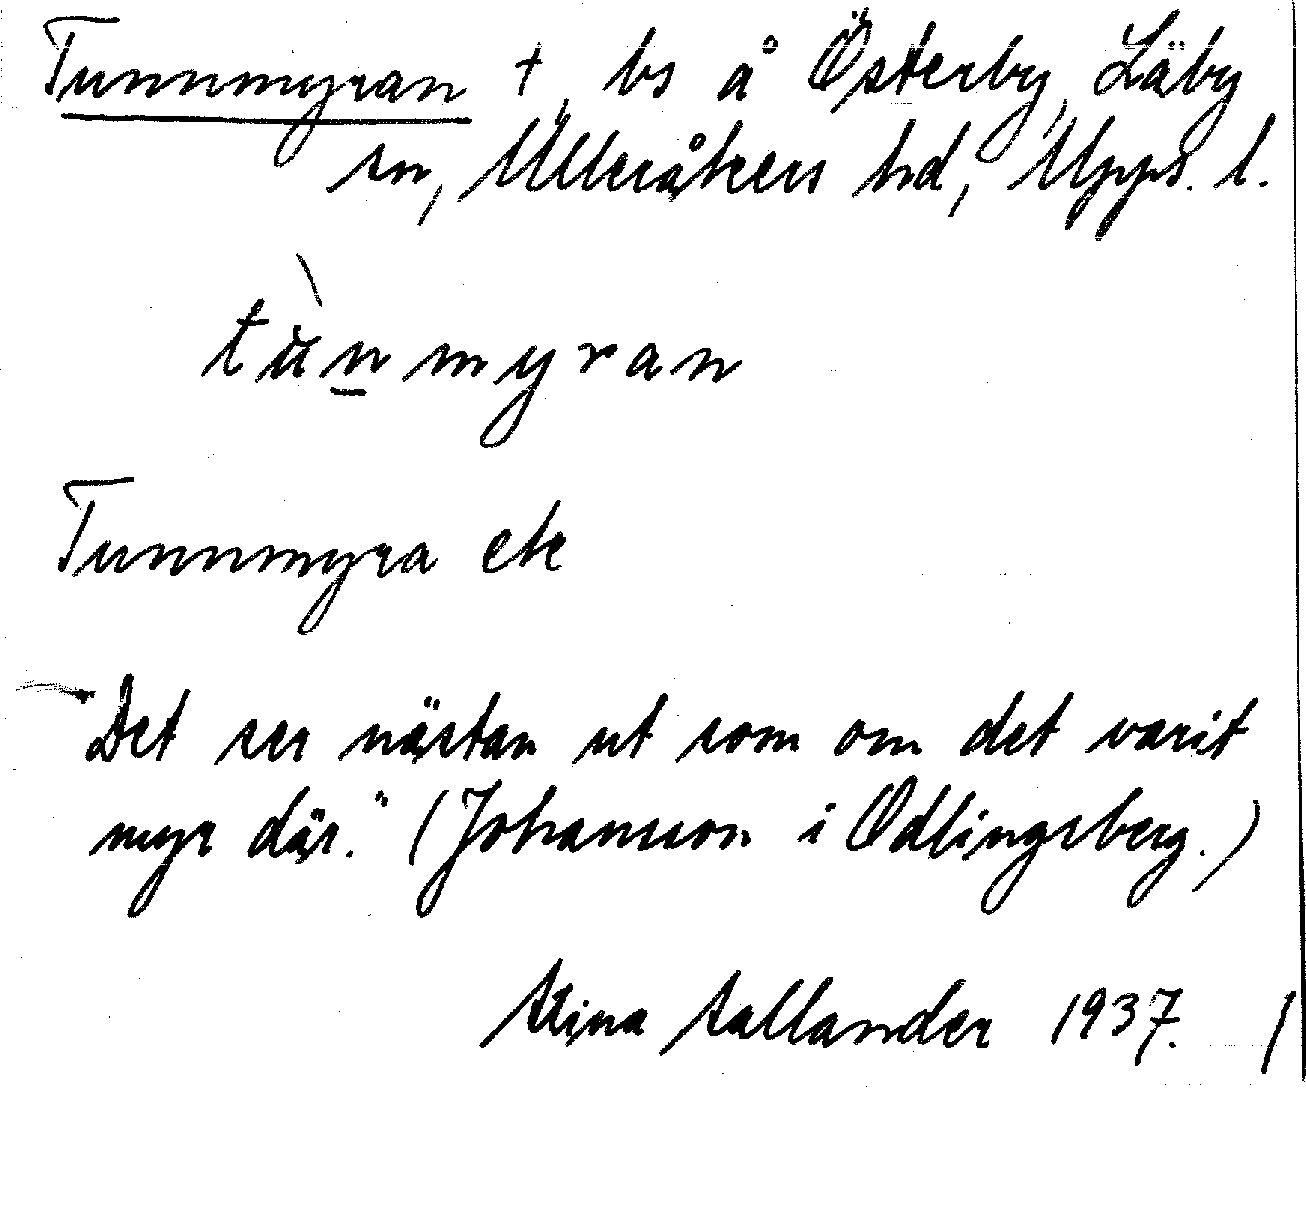 Tunnmyran † bs å Österby, Läby
sn, Ulleråkers hd, Upps. l.
tùn̲myran
Tunnmyra etc
"Det ser nästan ut som om det varit
myr där." (Johansson i Odlingsberg.)
Stina Sallander 1937.